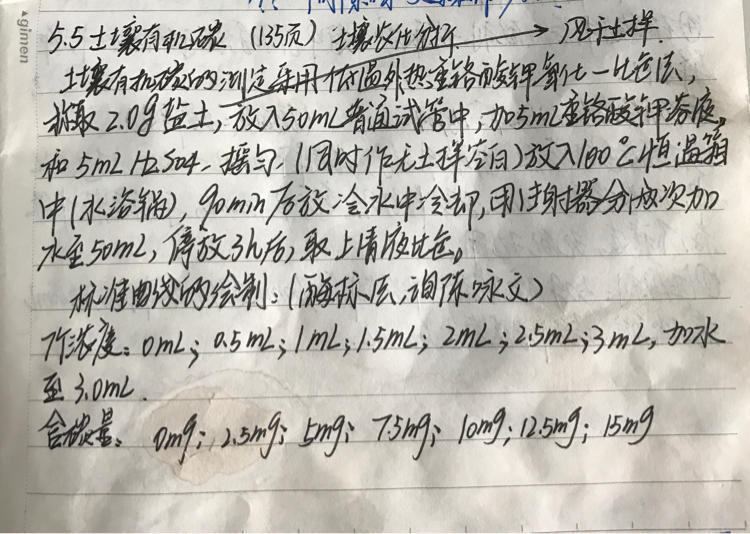 gimen
5.5土壤有机碳 (135页) 土壤农化分析 → 风干土样
土壤有机碳的测定采用低温外热重铬酸钾氧化一比色法,
称取2.0g盐土,放入50mL普通试管中,加5mL重铬酸钾溶液,
和5mL H2SO4,摇匀.(同时作无土样空白)放入100℃恒温箱
中(水浴锅),90min后放冷水中冷却,用注射器分次加
水至50mL,停放3h后,取上清液比色。
标准曲线的绘制:(酶标法,询陈咏文)
7个浓度:0mL;0.5mL;1mL;1.5mL;2mL;2.5mL;3mL,加水
至3.0mL.
含碳量:0mg;2.5mg;5mg;7.5mg;10mg;12.5mg;15mg